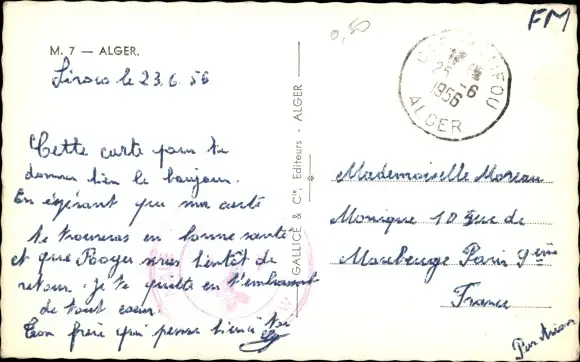 M. 7 — ALGER.
le 23.6.56
Cette carte pour te
donner bien le bonjour.
En espérant que ma carte
te trouveras en bonne santé
et que Roger seras bientôt de
retour. Je te quitte en t'embrassant
de tout cœur.
Ton frère qui pense bien à toi
GALLICE & Cie, Editeurs - ALGER
0,50
FM
25 -6
1956
ALGER
Mademoiselle Moreau
Monique 10 Rue de
Maubeuge Paris 9ème
France
Par Avion